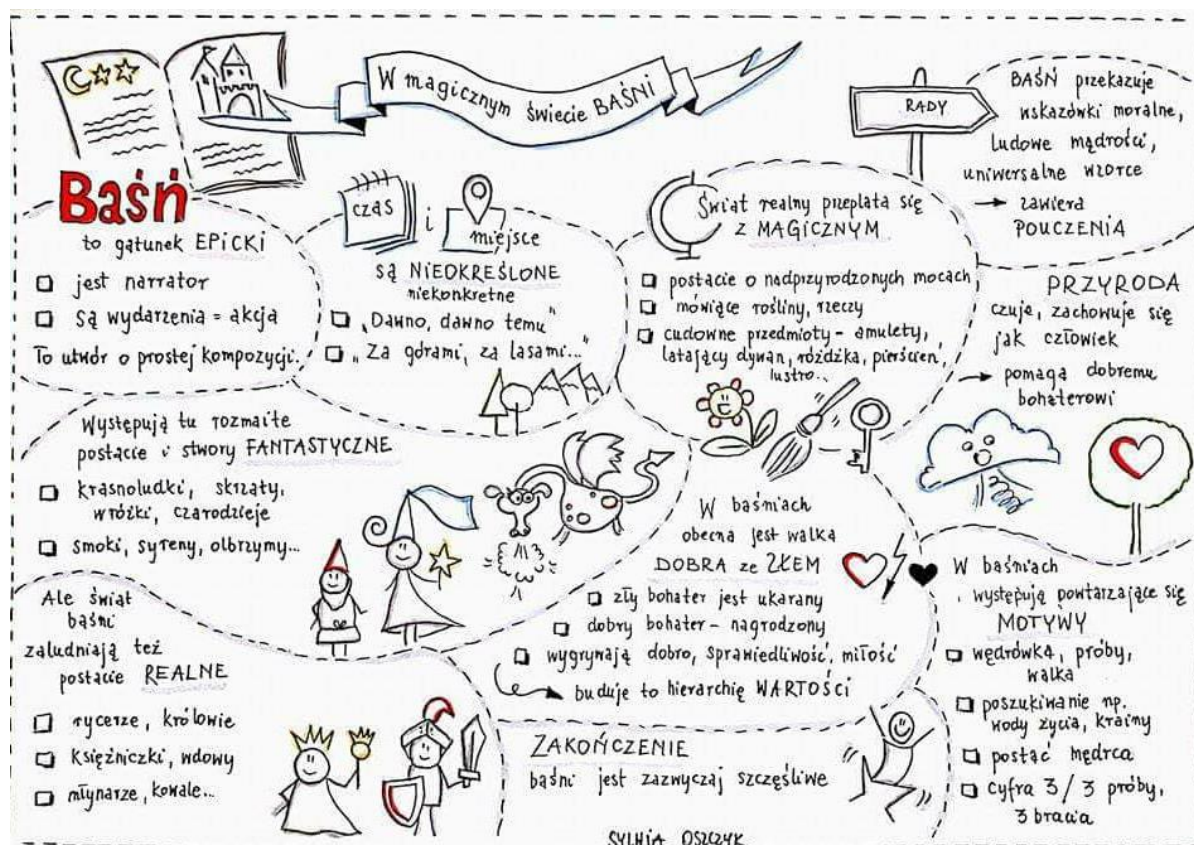 W magicznym świecie BAŚNI
Baśń
to gatunek EPICKI
jest narrator
są wydarzenia = akcja
To utwór o prostej kompozycji.
czas
i
miejsce
są NIEOKREŚLONE
niekonkretne
„Dawno, dawno temu"
„Za górami, za lasami..."
Świat realny przeplata się
z MAGICZNYM
postacie o nadprzyrodzonych mocach
mówiące rośliny, rzeczy
cudowne przedmioty - amulety,
latający dywan, różdżka, pierścień,
lustro...
RADY
BAŚŃ przekazuje
wskazówki moralne,
ludowe mądrości,
uniwersalne wzorce
→ zawiera
POUCZENIA
PRZYRODA
czuje, zachowuje się
jak człowiek
→ pomaga dobremu
bohaterowi
Występują tu rozmaite
postacie i stwory FANTASTYCZNE
krasnoludki, skrzaty,
wróżki, czarodzieje
smoki, syreny, olbrzymy...
Ale świat
baśni
zaludniają też
postacie REALNE
rycerze, królowie
księżniczki, wdowy
młynarze, kowale...
W baśniach
obecna jest walka
DOBRA ze ZŁEM
zły bohater jest ukarany
dobry bohater - nagrodzony
wygrywają dobro, sprawiedliwość, miłość
buduje to hierarchię WARTOŚCI
ZAKOŃCZENIE
baśni jest zazwyczaj szczęśliwe
W baśniach
występują powtarzające się
MOTYWY
wędrówka, próby,
walka
poszukiwanie np.
wody życia, krainy
postać mędrca
cyfra 3 / 3 próby,
3 bracia
SYLWIA OSZCZYK